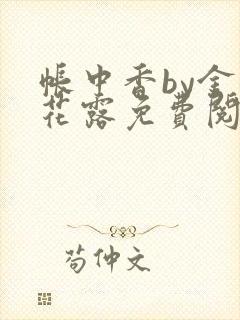 帐中香by金
花露免費閱
苟仲文